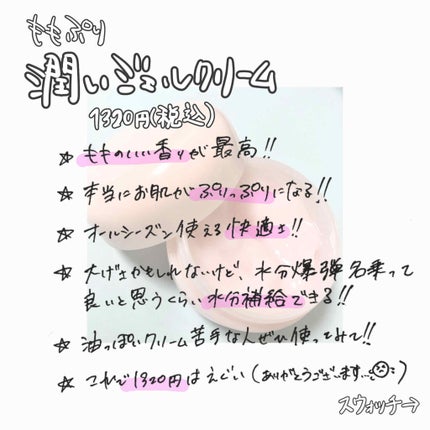 ももぷり
潤いジェルクリーム
1320円(税込)
☆ もものいい香りが最高!!
☆ 本当にお肌がぷりっぷりになる!!
☆ オールシーズン使える快適さ!!
☆ 大げさかもしれないけど、水分爆弾名乗って
良いと思うくらい水分補給できる!!
☆ 油っぽいクリーム苦手な人ぜひ使ってみて!!
☆ これで1320円はえぐい(ありがとうございます…)
スウォッチ→